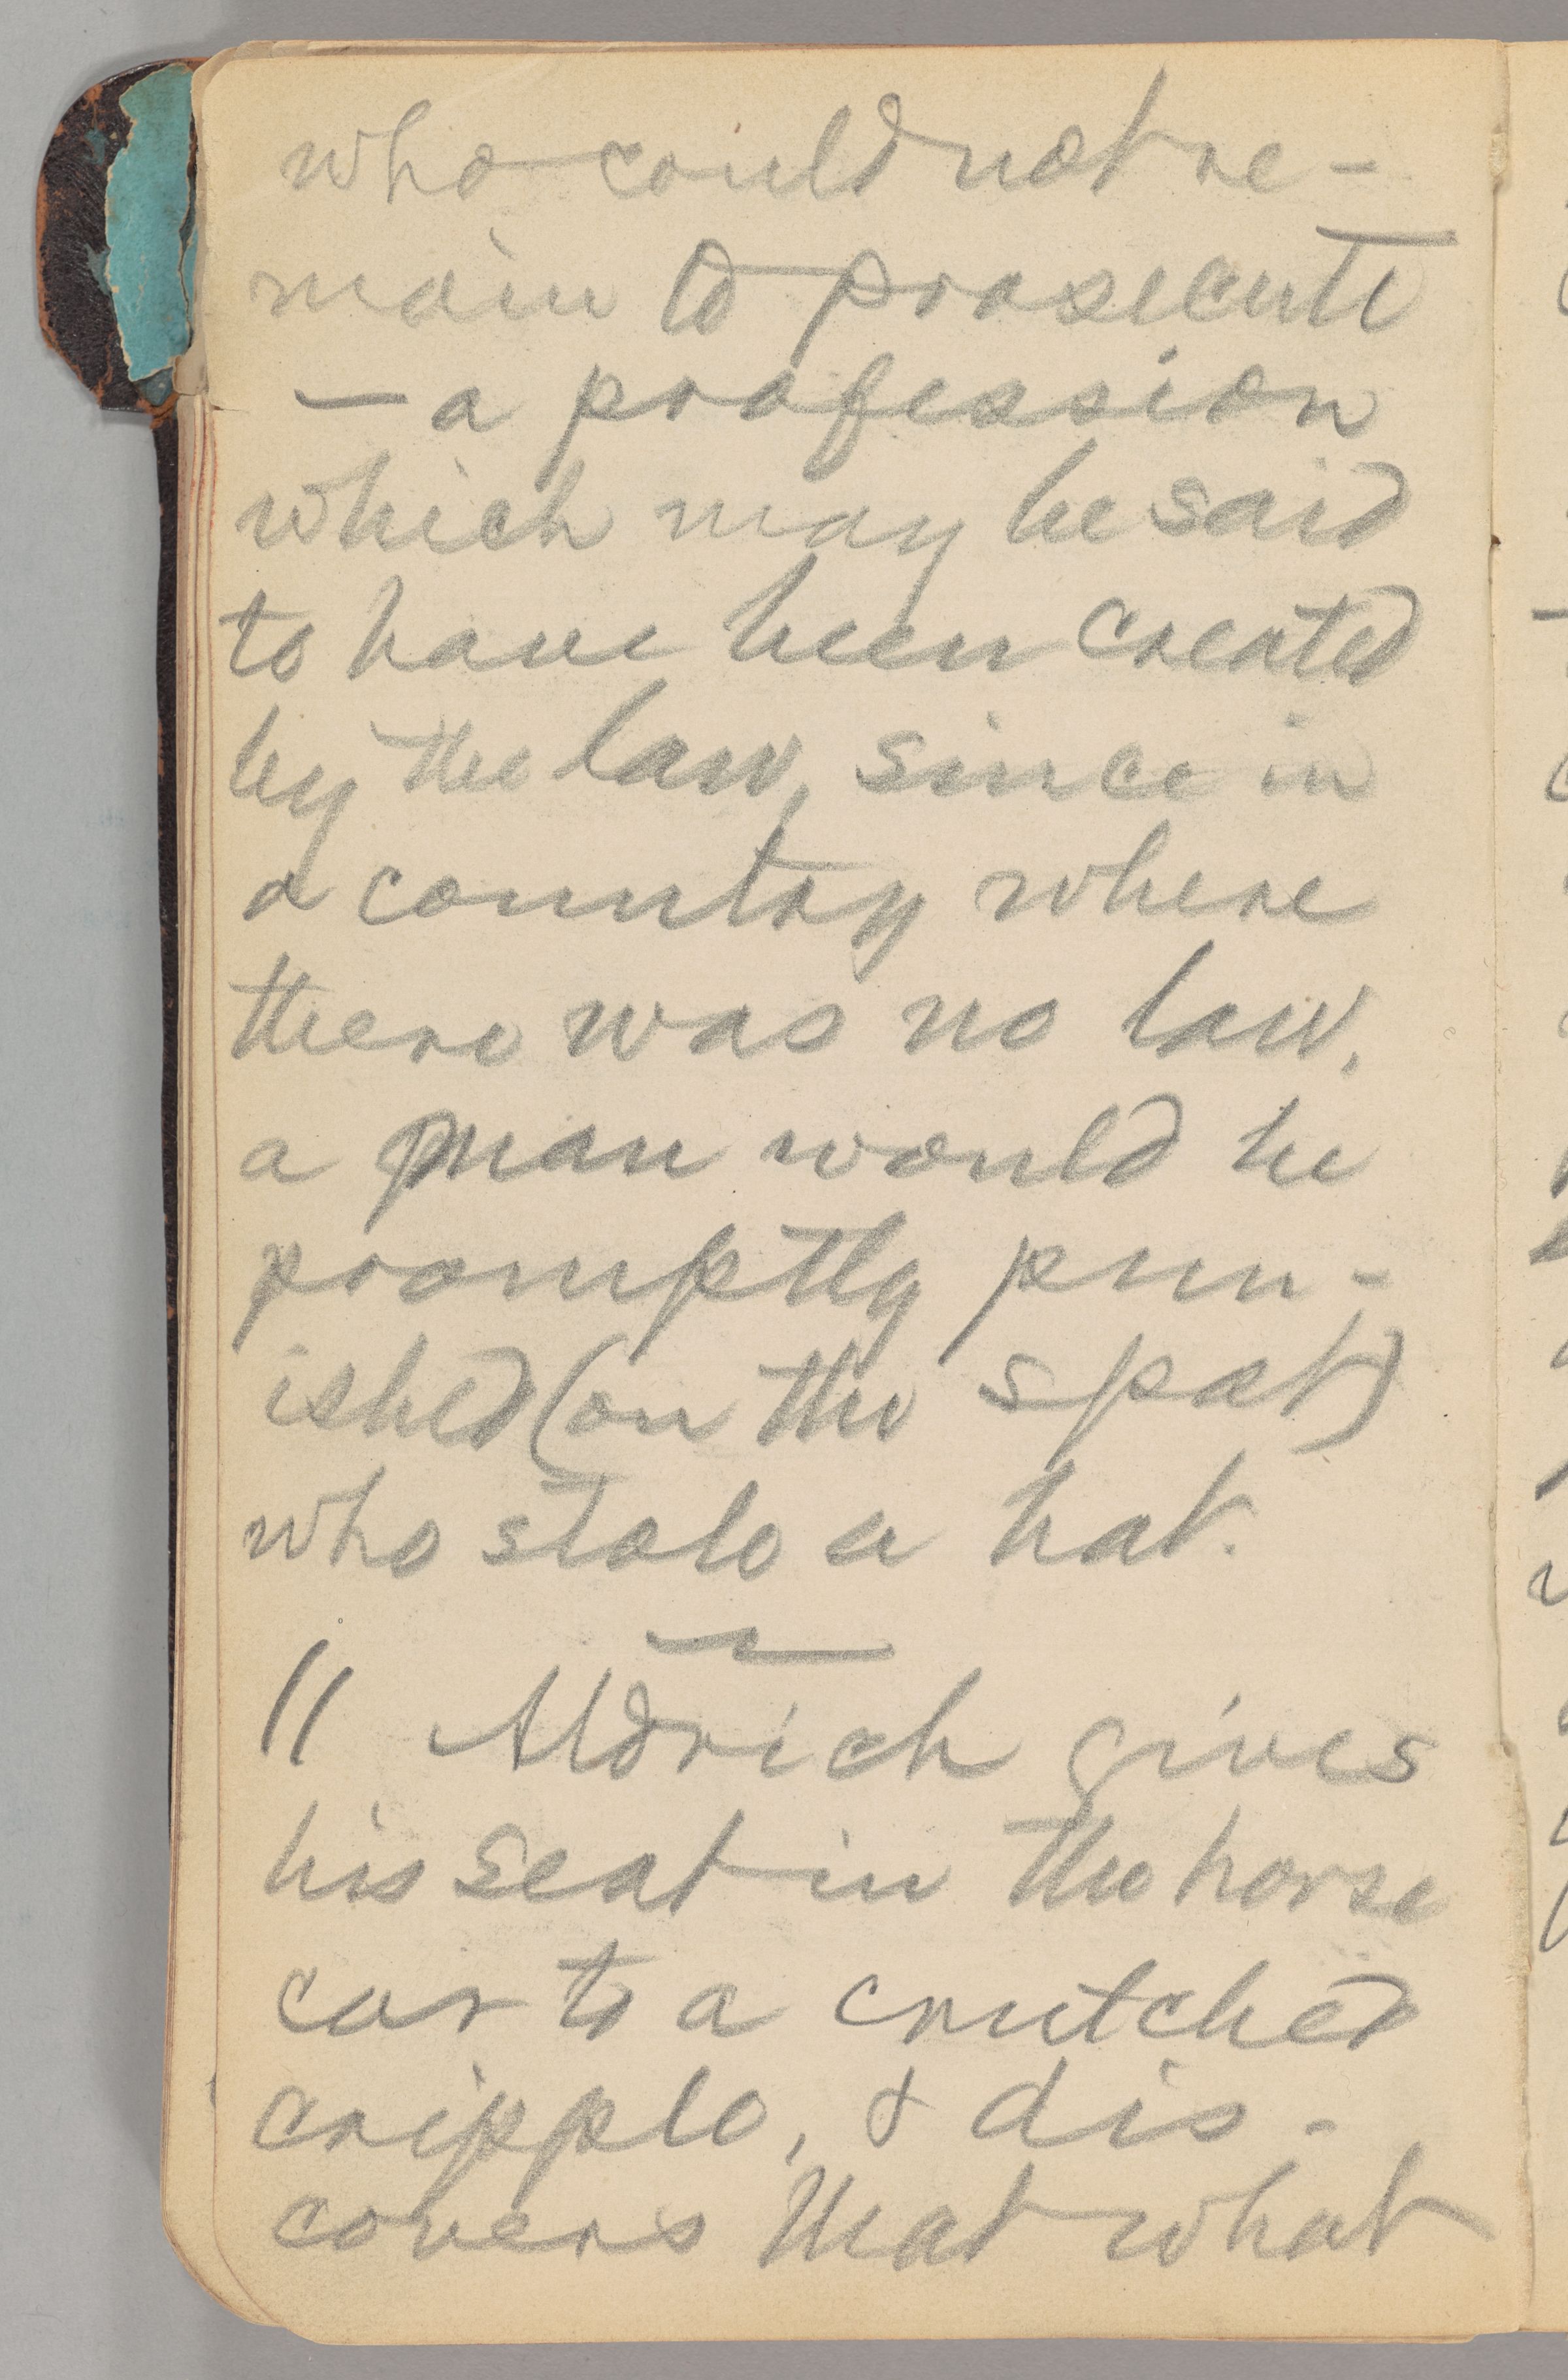 who could not re-
main to prosecute
— a profession
which may be said
to have been created
by the law, since in
a country where
there was no law,
a man would be
promptly pun-
ished (on the spot)
who stole a hat.
—
// Aldrich gives
his seat in the horse
car to a crutched
cripple, & dis-
covers that what